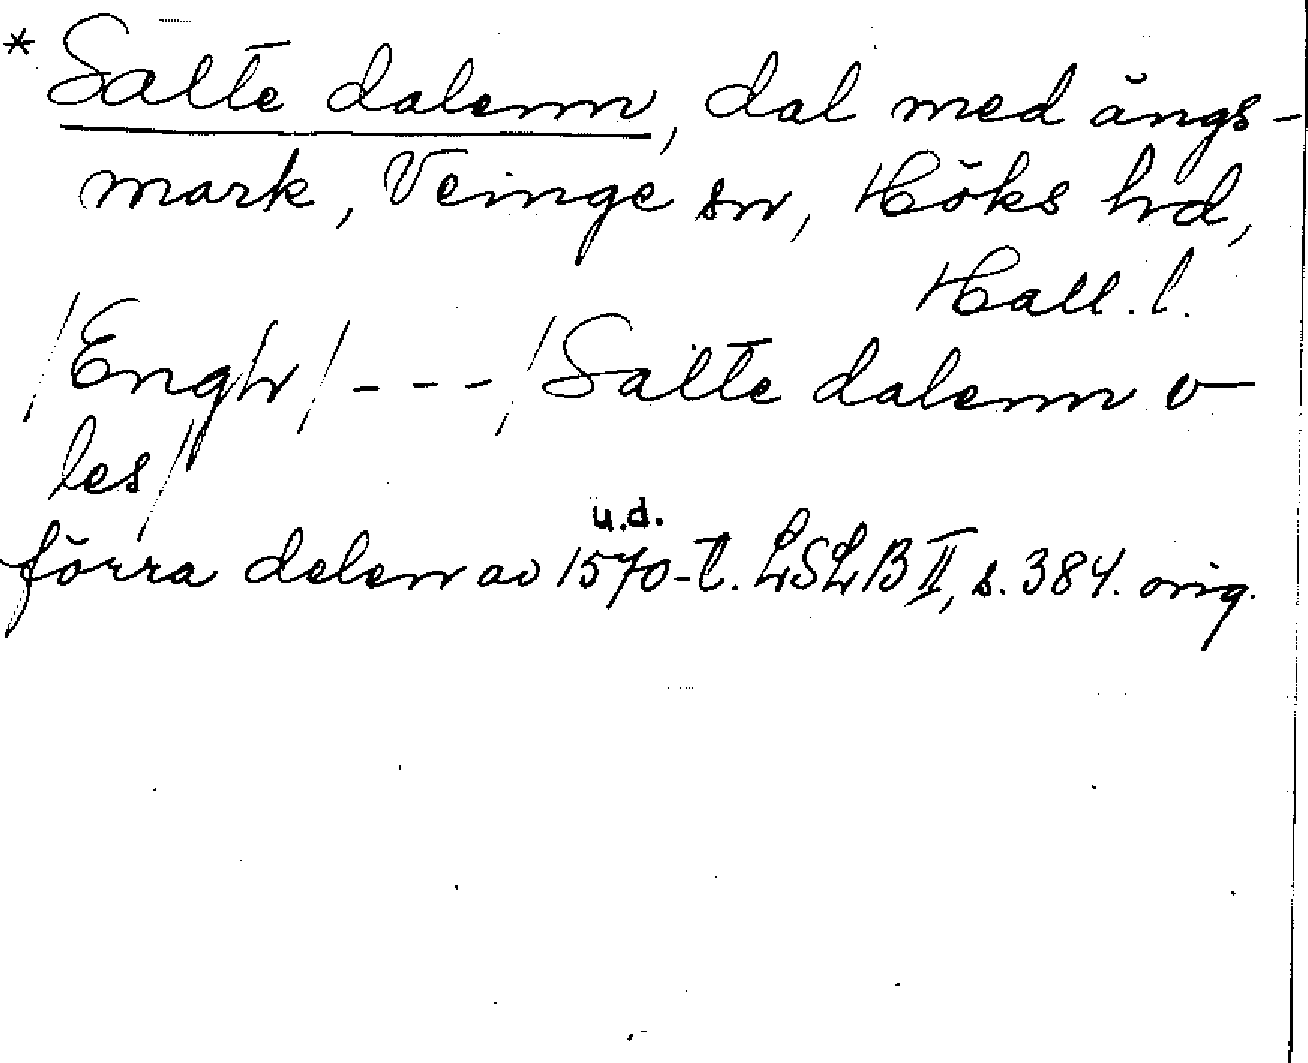 * Salte dalenn, dal med ängs-
mark, Veinge sn, Höks hd,
Hall. l.
/Engh/ --- /Salte dalenn v
les/
u.d.
förra delen av 1570-t. LSLB II, s. 384. orig.